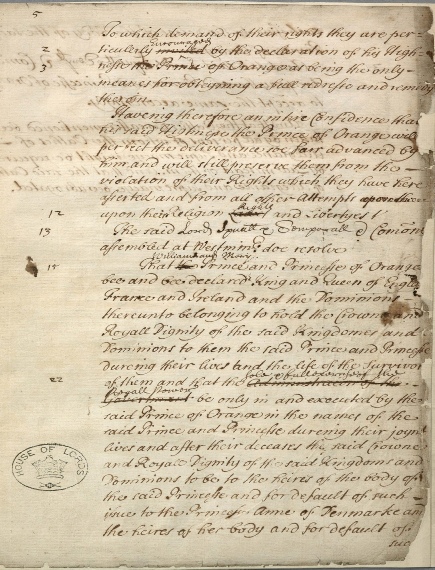 5
To which demand of their rights they are per-
2 ticulerly encouraged invited by the declaration of his High-
3 nesse the Prince of Orange as being the only
meanes for obteyning a full redresse and remedy
therein.
Haveing therefore an intire Confidence that
his said Highnesse the Prince of Orange will
perfect the deliverance soe farr advanced by
him and will still preserve them from the
violation of their Rights which they have here
asserted and from all other Attempts upon their
12 upon their Religion Rights and Libertyes
13 The said Lords Spirituall & Temporall & Com̄ons
assembled at Westminr doe resolve
William and Mary
15 That the Prince and Princesse of Orange
bee and bee declared King and Queen of England
France and Ireland and the Dominions
thereunto belonging to hold the Crowne and
Royall Dignity of the said Kingdomes and
Dominions to them the said Prince and Princesse
dureing their lives and the life of the Survivor
sole & full exercise of the
22 of them and that the Administracion of the
Regall Power
Government be only in and executed by the
said Prince of Orange in the names of the
said Prince and Princesse dureing their joynt
lives and after their deceases the said Crowne
and Royall Dignity of the said Kingdoms and
Dominions to be to the heires of the body of
the said Princesse and for default of such
issue to the Princess Anne of Denmarke and
the heires of her body and for default of
such
HOUSE OF LORDS